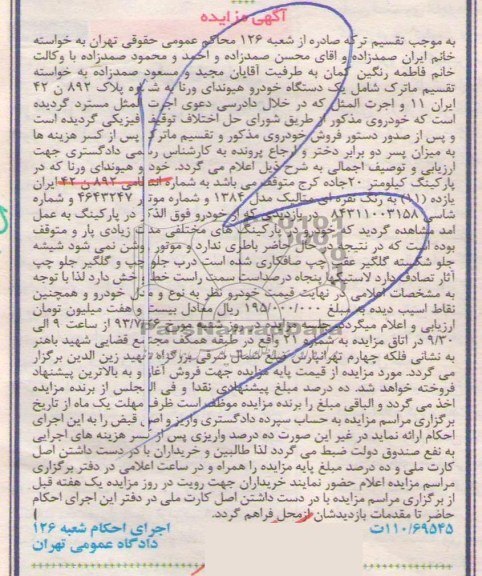 آگهی مزایده
به موجب تقسیم ترکه صادره از شعبه ۱۲۶ محاکم عمومی حقوقی تهران به خواسته
خانم ایران صمدزاده و اقای محسن صمدزاده و احمد و محمود صمدزاده با وکالت
خانم فاطمه رنگین کمان به طرفیت آقایان مجید و مسعود صمدزاده به خواسته
تقسیم ماترک شامل یک دستگاه خودرو هیوندای ورنا به شماره پلاک ۸۹۲ ن ۴۲
ایران ۱۱ و اجرت المثل که در خلال دادرسی دعوی اجرت المثل مسترد گردیده
است که خودروی مذکور از طریق شورای حل اختلاف توقیف فیزیکی گردیده است
و پس از صدور دستور فروش خودروی مذکور و تقسیم ماترک پس از کسر هزینه ها
به میزان پسر دو برابر دختر و ارجاع پرونده به کارشناس رسمی دادگستری جهت
ارزیابی و توصیف اجمالی به شرح ذیل اعلام می گردد. خودرو هیوندای ورنا که در
پارکینگ کیلومتر ۲۰جاده کرج متوقف می باشد به شماره انتظامی ۸۹۲ ن ۴۲ ایران
یازده (۱۱) به رنگ نقره ای متالیک مدل ۱۳۸۴ و شماره موتور ۴۶۴۳۲۴۷ و شماره
شاسی ۸۴۳۱۱۰۰۳۱۵۸ در بازدیدی که از خودرو فوق الذکر در پارکینگ به عمل
امد مشاهده گردید که خودرو در پارکینگ های مختلفی مدت زیادی پار و متوقف
بوده است که در نتیجه در حال حاضر باطری ندارد و موتور روشن نمی شود شیشه
جلو شکسته گلگیر عقب چپ صافکاری شده است درب جلو چپ و گلگیر جلو چپ
آثار تصادف دارد لاستیکها پنجاه درصداست سمت راست خط و خش دارد لذا با توجه
به مشخصات اعلامی در نهایت قیمت خودرو نظر به نوع و مدل خودرو و همچنین
نقاط اسیب دیده به مبلغ ۱۹۵/۰۰۰/۰۰۰ ریال معادل بیست و هفت میلیون تومان
ارزیابی و اعلام میگردد جلسه مزایده در روز ۹۳/۷ از ساعت ۹ الی
۹/۳۰ در اتاق مزایده به شماره ۲۱ واقع در طبقه همکف مجتمع قضایی شهید باهنر
به نشانی فلکه چهارم تهرانپارس ضلع شمال شرقی بزرگراه شهید زین الدین برگزار
می گردد. مورد مزایده از قیمت پایه مزایده جهت فروش آغاز و به بالاترین پیشنهاد
فروخته خواهد شد. ده درصد مبلغ پیشنهادی نقدا و فی المجلس از برنده مزایده
اخذ می گردد و الباقی مبلغ را برنده مزایده موظف است ظرف مهلت یک ماه از تاریخ
برگزاری مراسم مزایده به حساب سپرده دادگستری واریز و اصل قبض را به این اجرای
احکام ارائه نماید در غیر این صورت ده درصد واریزی پس از کسر هزینه های اجرایی
به نفع صندوق دولت ضبط می گردد لذا طالبین و خریداران با در دست داشتن اصل
کارت ملی و ده درصد مبلغ پایه مزایده را همراه و در ساعت اعلامی در دفتر برگزاری
مراسم مزایده اعلام حضور نمایند خریداران جهت رویت در روز مزایده یک هفته قبل
از برگزاری مراسم مزایده با در دست داشتن اصل کارت ملی در دفتر این اجرای احکام
حاضر تا مقدمات بازدیدشان ازمحل فراهم گردد.
۱۱۰/۶۹۵۴۵ت
اجرای احکام شعبه ۱۲۶
دادگاه عمومی تهران